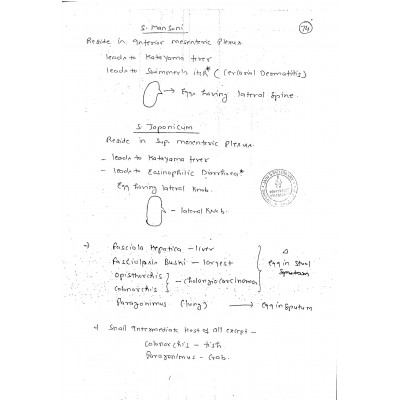 74
S. Mansoni
Reside in anterior mesenteric Plexus
leads to Katayama fever
leads to Swimmer's itch* (Cercarial Dermatitis)
→ Egg having lateral Spine.
S. Japonicum
Reside in Sup. mesenteric Plexus.
- leads to Katayama fever
- leads to Eosinophilic Diarrhoea*
Egg having lateral Knob.
- lateral Knob.
→ Fasciola Hepatica - liver
Fasciolopsis Buski - largest
Opisthorchis
Colonorchis } - Cholangiocarcinoma
Egg in Stool
Paragonimus (lung) → Egg in Sputum
→ Snail Intermediate Host of all except -
Colonorchis - fish
Paragonimus - Crab.